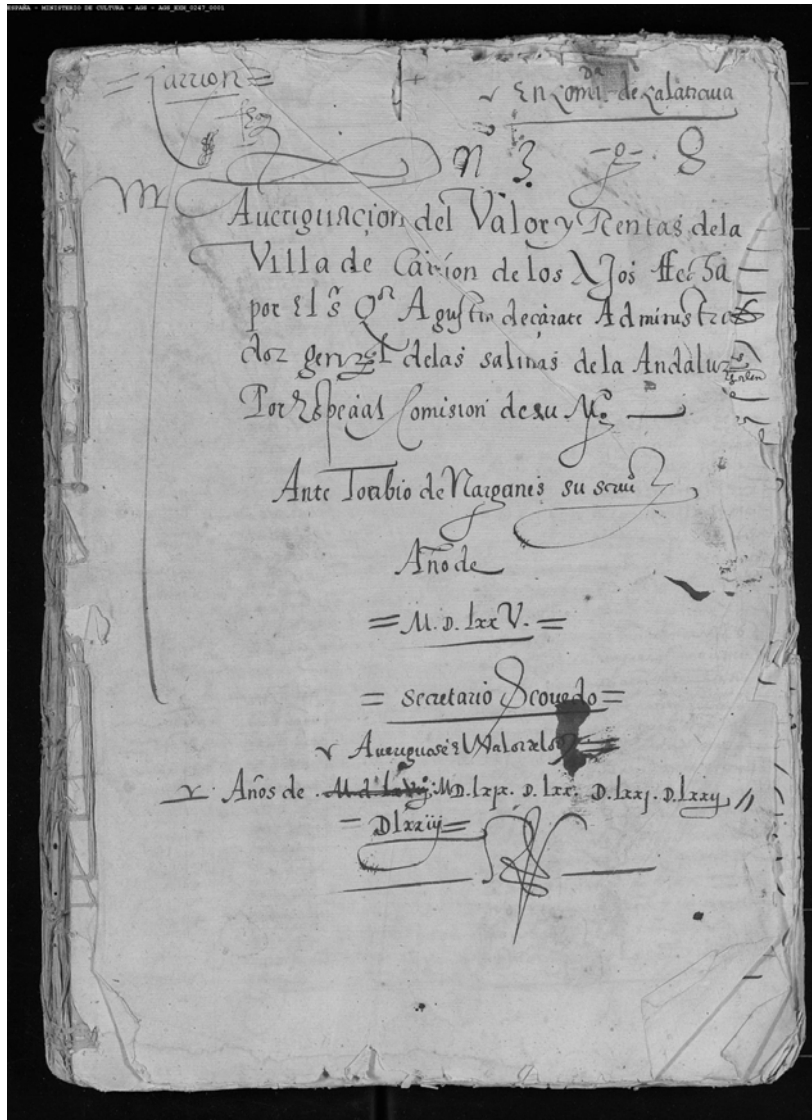 ESPAÑA - MINISTERIO DE CULTURA - AGS - AGS_EXH_0247_0001
= Carrion =
En Comi. de Calatraua
n 3 -o- 8
Aueriguacion del Valor y Rentas dela
Villa de Carrion de los Ajos ffecha
por El s. Agustin de çarate Administra
dor gen.l delas salinas de la Andaluz
Por Espeçial Comision de su M.
Ante Toribio de Narganes su scriu
Año de
= M. D. lxxV. =
= Secretario Scouedo =
Aueriguase El Valor de los
Años de M.d.lxviij. MD.lxix. D.lxx. D.lxxj. D.lxxij //
= Dlxxiij =